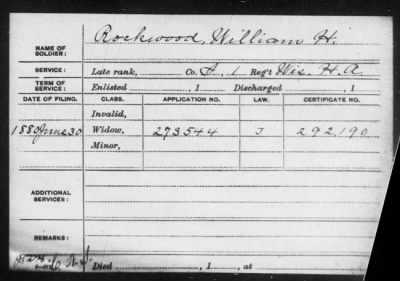 NAME OF SOLDIER: Rockwood, William H.
SERVICE: Late rank, Co. I, 1 Reg't Wis. H. A
TERM OF SERVICE: Enlisted , 1 Discharged , 1
DATE OF FILING. CLASS. APPLICATION NO. LAW. CERTIFICATE NO.
Invalid,
1880 June 30 Widow, 273544 J 292,190
Minor,
ADDITIONAL SERVICES:
REMARKS:
Died , 1 , at